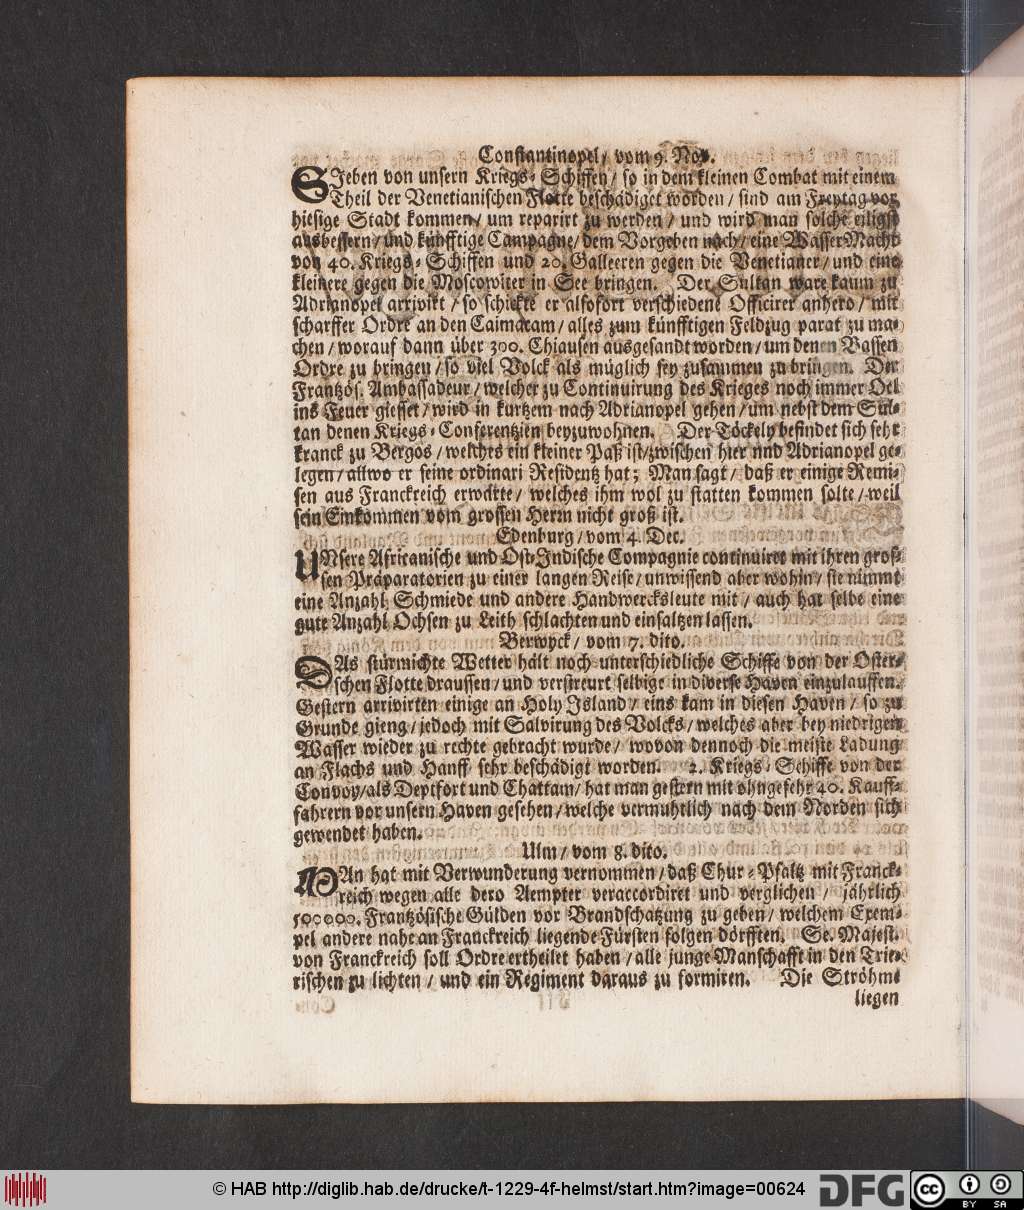 Constantinopel / vom 9. Nov.
SJeben von unsern Kriegs-Schiffen / so in dem kleinen Combat mit einem
Theil der Venetianischen Flotte beschädiget worden / sind am Freytag vor
hiesige Stadt kommen / um reparirt zu werden / und wird man solche eiligst
ausbessern / und künfftige Campagne / dem Vorgeben nach / eine WasserMacht
von 40. Kriegs-Schiffen und 20. Galleeren gegen die Venetianer / und eine
kleinere gegen die Moscowiter in See bringen. Der Sultan ware kaum zu
Adrianopel arrivirt / so schickte er alsofort verschiedene Officirer anhero / mit
scharffer Ordre an den Caimacam / alles zum künfftigen Feldzug parat zu ma-
chen / worauf dann über 300. Chiausen ausgesandt worden / um denen Bassen
Ordre zu bringen / so viel Volck als müglich sey zusammen zu bringen. Der
Frantzös. Ambassadeur / welcher zu Continuirung des Krieges noch immer Oel
ins Feuer giesset / wird in kurtzem nach Adrianopel gehen / um nebst dem Sul-
tan denen Kriegs-Conferentzien beyzuwohnen. Der Töckely befindet sich sehr
kranck zu Bergos / welches ein kleiner Paß ist / zwischen hier nnd Adrianopel ge-
legen / allwo er seine ordinari Residentz hat; Man sagt / daß er einige Remi-
sen aus Franckreich erwarte / welches ihm wol zu statten kommen solte / weil
sein Einkommen vom grossen Herrn nicht groß ist.
Edenburg / vom 4. Dec.
UNsere Africanische und Ost-Jndische Compagnie continuiret mit ihren gros-
sen Präparatorien zu einer langen Reise / unwissend aber wohin / sie nimmt
eine Anzahl Schmiede und andere Handwercksleute mit / auch hat selbe eine
gute Anzahl Ochsen zu Leith schlachten und einsaltzen lassen.
Berwyck / vom 7. dito.
DAs stürmichte Wetter hält noch unterschiedliche Schiffe von der Oster-
schen Flotte draussen / und verstreurt selbige in diverse Haven einzulauffen.
Gestern arrivirten einige an Holy Jsland / eins kam in diesen Haven / so zu
Grunde gieng / jedoch mit Salvirung des Volcks / welches aber bey niedrigen
Wasser wieder zu rechte gebracht wurde / wovon dennoch die meiste Ladung
an Flachs und Hanff sehr beschädigt worden. 2. Kriegs-Schiffe von der
Convoy / als Deptfort und Chattam / hat man gestern mit ohngefehr 40. Kauff-
fahrern vor unsern Haven gesehen / welche vermuhtlich nach dem Norden sich
gewendet haben.
Ulm / vom 8. dito.
MAn hat mit Verwunderung vernommen / daß Chur-Pfaltz mit Franck-
reich wegen alle dero Aempter veraccordiret und verglichen / jährlich
500000. Frantzösische Gülden vor Brandschatzung zu geben / welchem Exem-
pel andere nahe an Franckreich liegende Fürsten folgen dörfften. Se. Majest.
von Franckreich soll Ordre ertheilet haben / alle junge Manschafft in den Trie-
rischen zu lichten / und ein Regiment daraus zu formiren. Die Ströhme
liegen
© HAB http://diglib.hab.de/drucke/t-1229-4f-helmst/start.htm?image=00624
DFG
cc BY SA